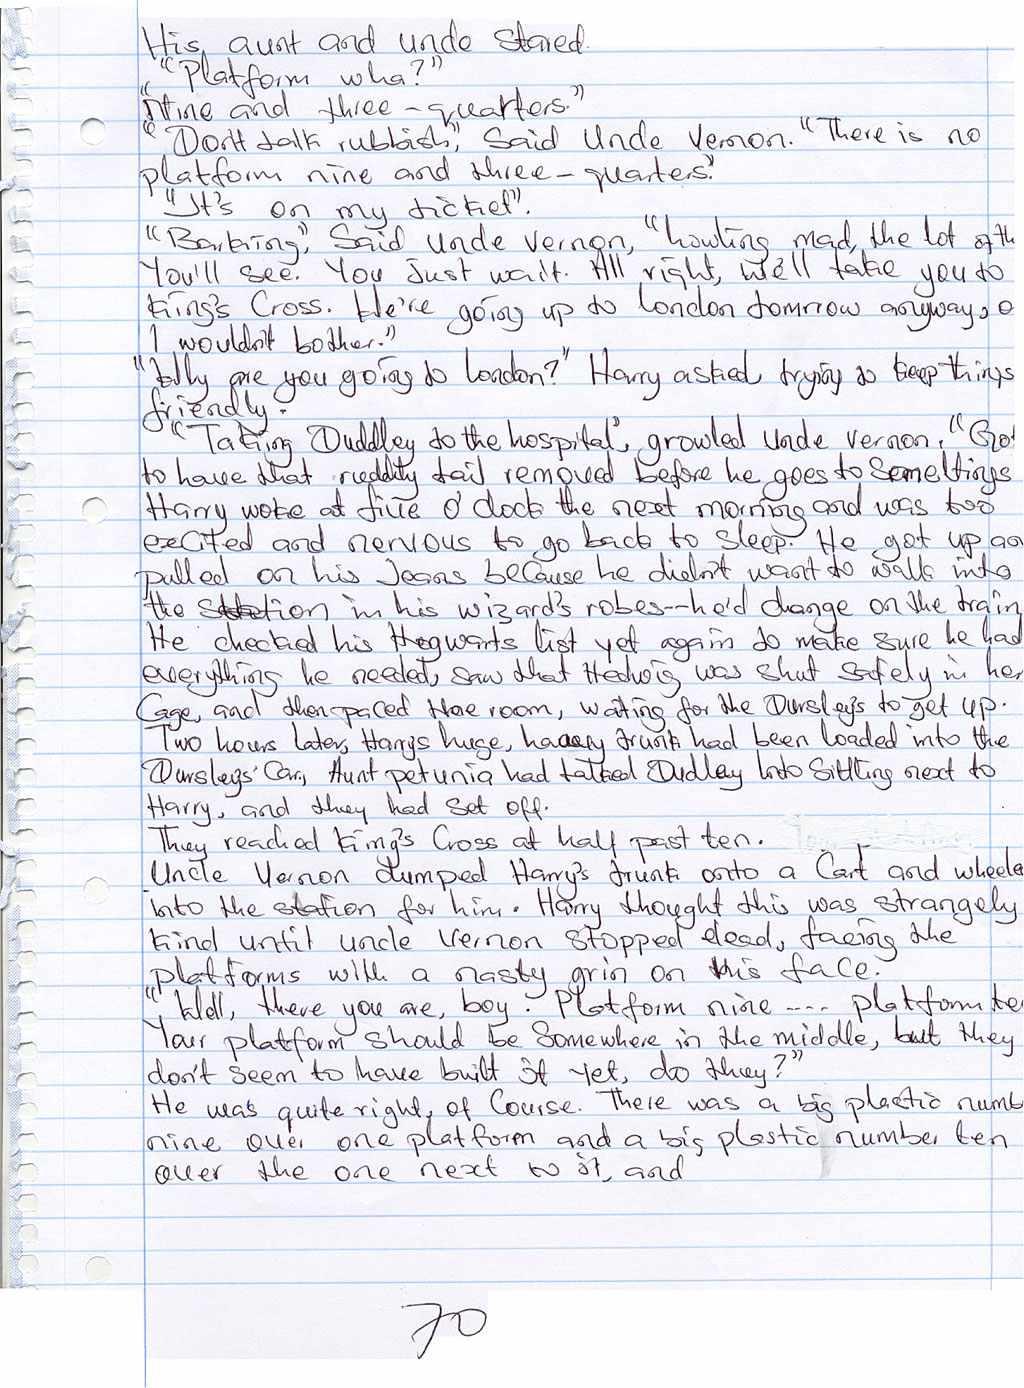 His aunt and uncle stared.
"Platform wha?"
"Nine and three-quarters."
"Don't talk rubbish," Said Uncle Vernon. "There is no
platform nine and three-quarters."
"It's on my ticket".
"Barking," Said Uncle Vernon, "howling mad, the lot of th
You'll see. You just wait. All right, we'll take you to
King's Cross. We're going up to London tomrrow anyway, o
I wouldn't bother."
"Why are you going to London?" Harry asked trying to keep things
friendly.
"Taking Duddley to the hospital", growled Uncle Vernon. "Got
to have that ruddity tail removed before he goes to Smeltings
Harry woke at five O'clock the next morning and was too
excited and nervous to go back to sleep. He got up an
pulled on his Jeans because he didn't want to walk into
the station in his wizard's robes--he'd change on the train
He checked his Hogwarts list yet again to make sure he had
everything he needed, saw that Hedwig was shut safely in her
Cage, and then paced the room, waiting for the Dursleys to get up.
Two hours later, Harry's huge, heavy trunk had been loaded into the
Dursleys' Car, Aunt petunia had talked Dudley Into Sittting next to
Harry, and they had set off.
They reached King's Cross at half past ten.
Uncle Vernon dumped Harry's trunk onto a Cart and wheele
into the station for him. Harry thought this was strangely
kind until uncle Vernon stopped dead, facing the
platforms with a nasty grin on his face.
"Well, there you are, boy. Platform nine ---- platform te
Your platform should be Somewhere in the middle, but they
don't seem to have built it yet, do they?"
He was quite right, of Course. There was a big plastic numb
nine over one platform and a big plastic number ten
over the one next to it, and
70